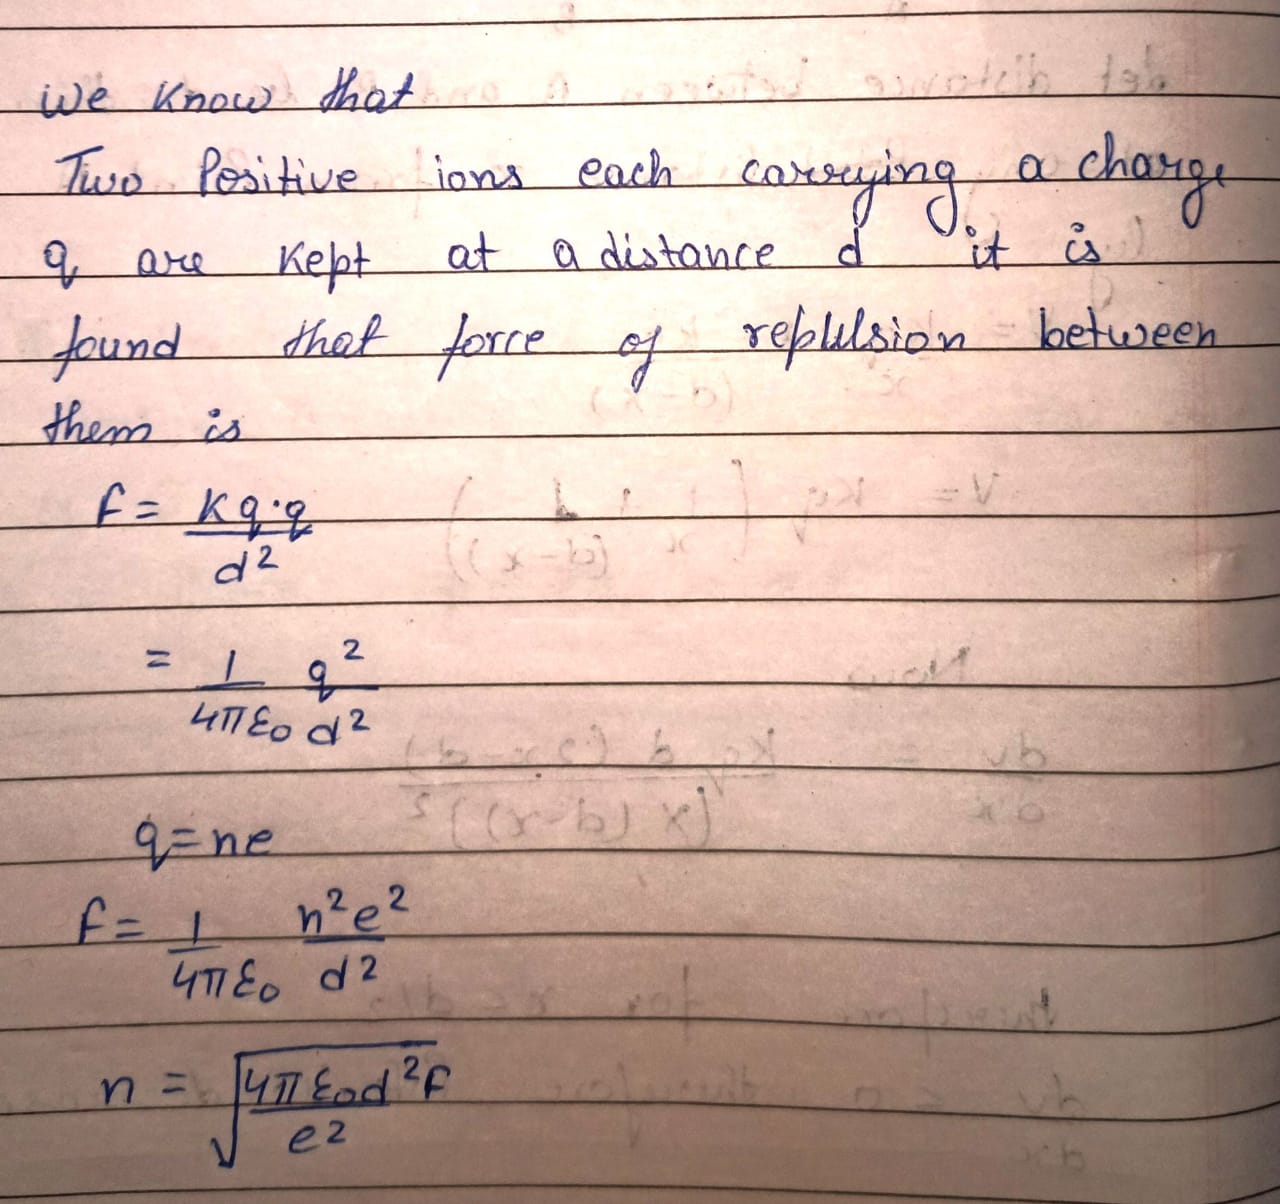 We know that
Two Positive ions each carrying a charge
q are kept at a distance d it is
found that force of repulsion between
them is
F = Kq·q / d²
= 1/4πε₀ q²/d²
q = ne
F = 1/4πε₀ n²e²/d²
n = √(4πε₀d²F / e²)